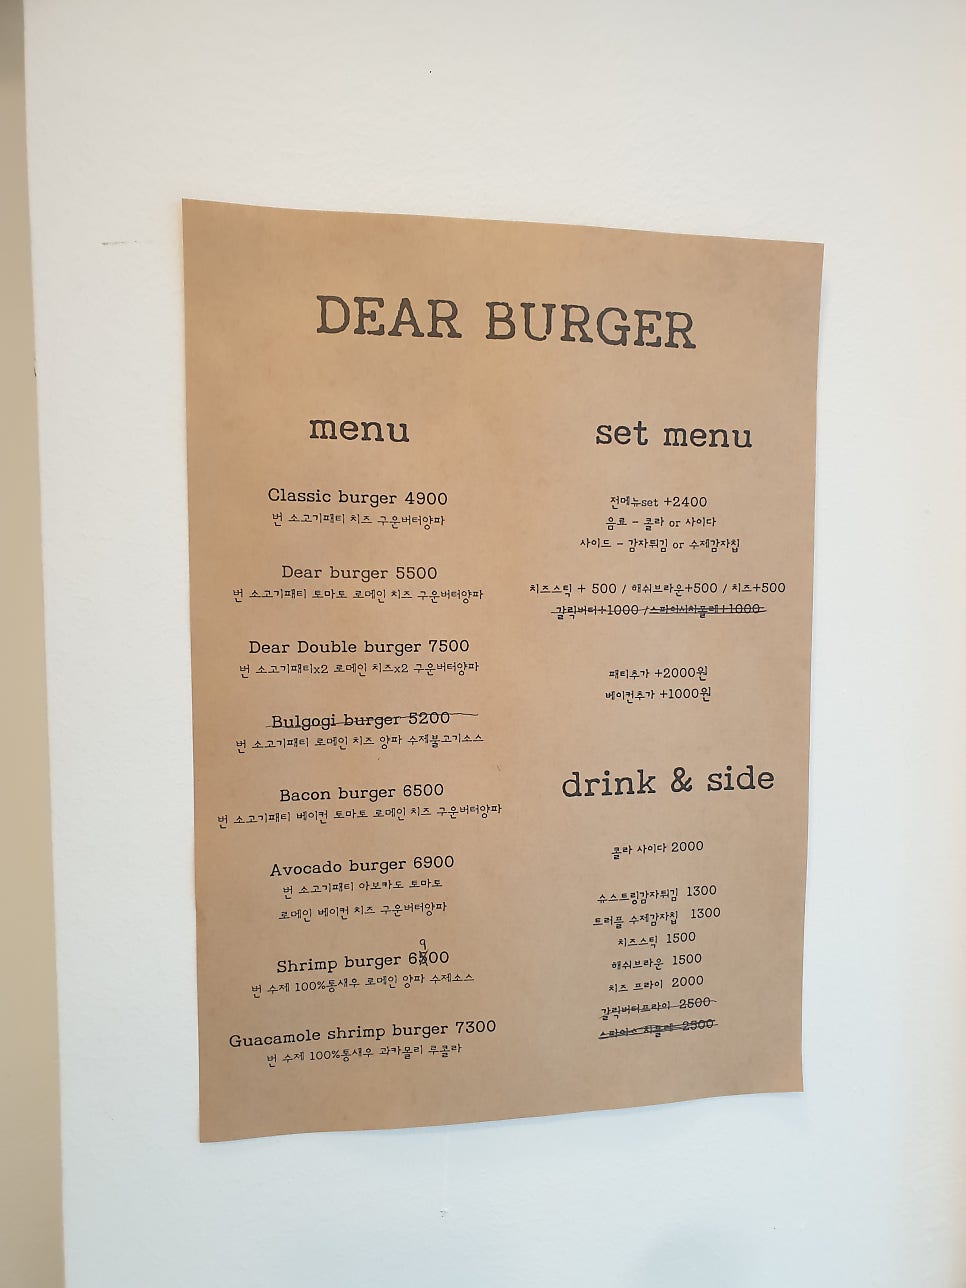 DEAR BURGER
menu
Classic burger 4900
번 소고기패티 치즈 구운버터양파
Dear burger 5500
번 소고기패티 토마토 로메인 치즈 구운버터양파
Dear Double burger 7500
번 소고기패티x2 로메인 치즈x2 구운버터양파
Bulgogi burger 5200
번 소고기패티 로메인 치즈 양파 수제불고기소스
Bacon burger 6500
번 소고기패티 베이컨 토마토 로메인 치즈 구운버터양파
Avocado burger 6900
번 소고기패티 아보카도 토마토
로메인 베이컨 치즈 구운버터양파
Shrimp burger 6900
번 수제 100%통새우 로메인 양파 수제소스
Guacamole shrimp burger 7300
번 수제 100%통새우 과카몰리 루콜라
set menu
전메뉴set +2400
음료 - 콜라 or 사이다
사이드 - 감자튀김 or 수제감자칩
치즈스틱 + 500 / 해쉬브라운+500 / 치즈+500
갈릭버터+1000 / +1000
패티추가 +2000원
베이컨추가 +1000원
drink & side
콜라 사이다 2000
슈스트링감자튀김 1300
트러플 수제감자칩 1300
치즈스틱 1500
해쉬브라운 1500
치즈 프라이 2000
갈릭버터프라이 2500
2500